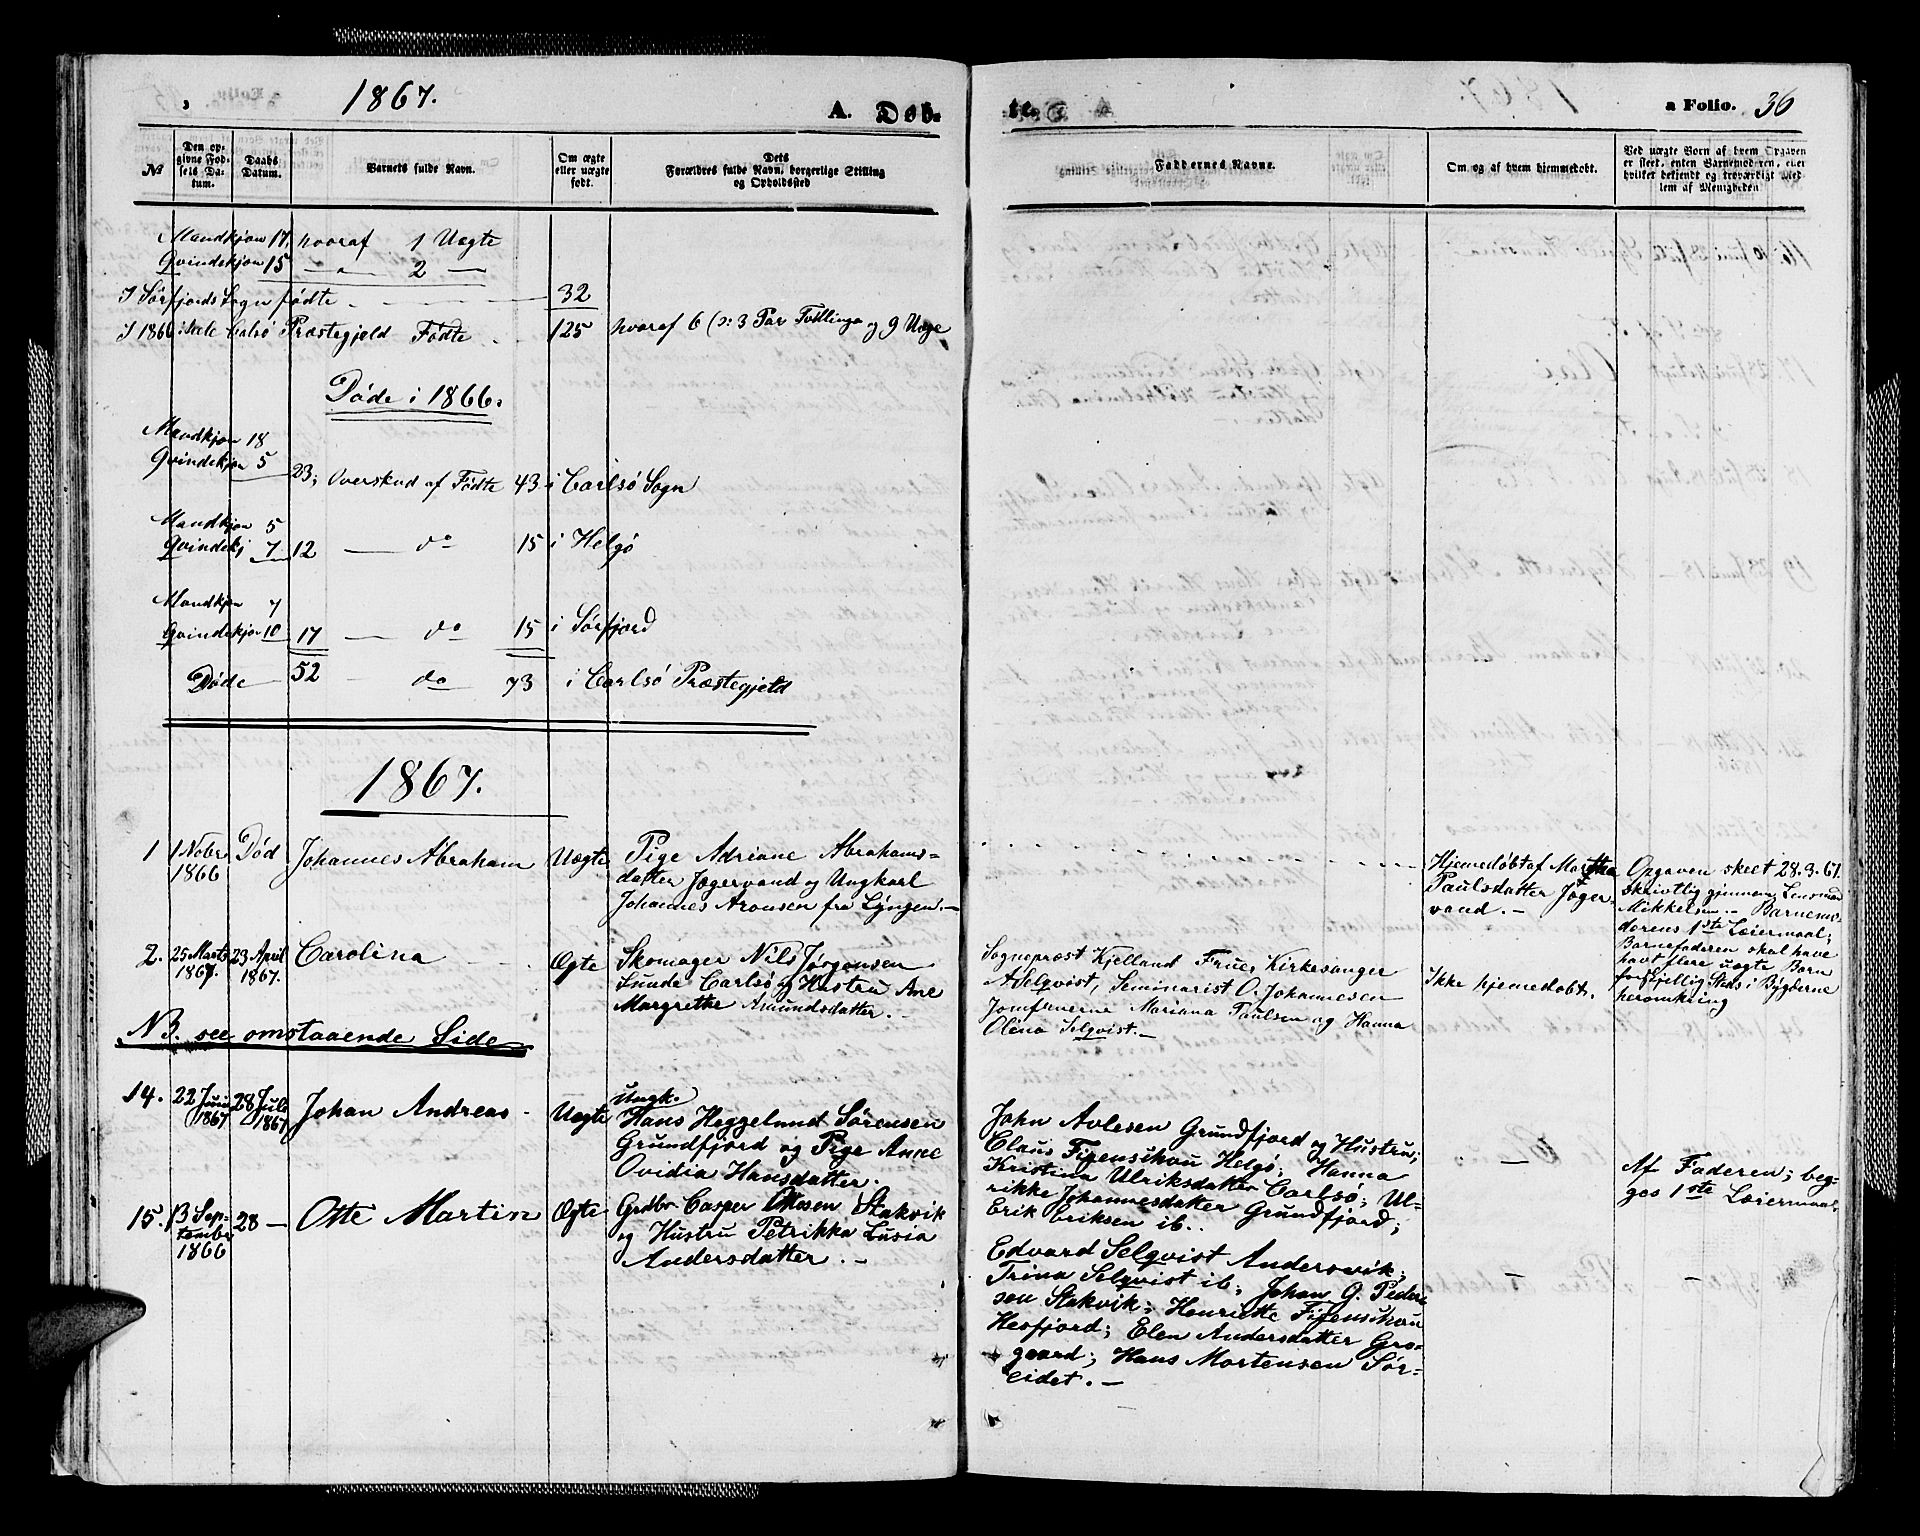 1867.
A. Døb-
te.
a Folio. 36
№
Den op-
givne Fød-
sels Da-
tum.
Daabs
Datum.
Barnets fulde Navn.
Om ægte
eller uægte
født.
Dets
Forældres fulde Navn, borgerlige Stilling
og Opholdssted
Faddernes Navne.
Om og af hvem hjemmedøbt.
Ved uægte Børn af hvem Opgaven
er skeet, enten Barnemoderen, eller
hvilket bekjendt og troværdigt Med-
lem af Menigheden
Mandkjøn 17. hvoraf 1 Uægte
Qvindekjøn 15 — " — 2 —
I Sørfjords Sogn fødte - 32
I 1866 i hele Carlsø Præstegjeld Fødte - 125 hvoraf 6 (ɔ: 3 Par Tvillinger og 9 Uægte
Døde i 1866.
Mandkjøn 18
Qvindekjøn 5 23; Overskud af Fødte 43 i Carlsø Sogn
Mandkjøn 5
Qvindekj 7 12 — do 15 i Helgø
Mandkjøn 7
Qvindekjøn 10 17 — do 15 i Sørfjord
Døde — 52 - do 73 i Carlsø Præstegjeld
1867.
1 1 Nobr 1866 Død Johannes Abraham Uægte
Pige Adriane Abrahams-
datter Jægervand og Ungkarl
Johannes Aronsen fra Lyngen. —
Hjemmedøbt af Marthe
Paulsdatter Jæger-
vand. —
Opgaven skeet 28.3.67.
skrivtlig gjennem Lensmd
Mikkelsen. — Barnemo-
derens 1ste Leiermaal;
Barnefaderen skal have
havt flere uægte Børn
forskjellig Steds i Bygderne
heromkring
2. 25 Marts 1867. 23 April 1867. Carolina - - Ægte
Skomager Nils Jørgensen
Carlsø og Hustru Ane
Margrethe Amundsdatter. —
Sogneprost Kjelland Frue, Kirkesanger
A. Selqvist, Seminarist O. Johannesen
Jomfruerne Mariana Paulsen og Hanna
Olina Selqvist. —
Ikke hjemmedøbt.
NB. see omstaaende Side
14. 22 Juni 1867 28 Juli 1867 Johan Andreas - Uægte
Ungk.
Hans Heggelund Sørensen
Grundfjord og Pige Anne
Ovidia Hansdatter.
John Avlesen Grundfjord og Hustru;
Claus Figenskou Helgø; Hanna
Kristina Ulriksdatter Carlsø; Ul-
rikke Johannesdatter Grundfjord;
Erik Eriksen ib. -
—
Af Faderen; beg-
ges 1ste Leiermaal
15. 13 Sep-
tember
1866 28 — Otte Martin Ægte
Grdbr Casper Ottesen Stakvik
og Hustru Petrikka Lusia
Andersdatter. —
Edvard Selqvist Andersvik;
Trina Selqvist ib; Johan G. Peder-
sen Stakvik; Henriette Figenskou
Hesfjord; Elen Andersdatter Gro-
gaard; Hans Mortensen Sør-
eidet. —
—
—